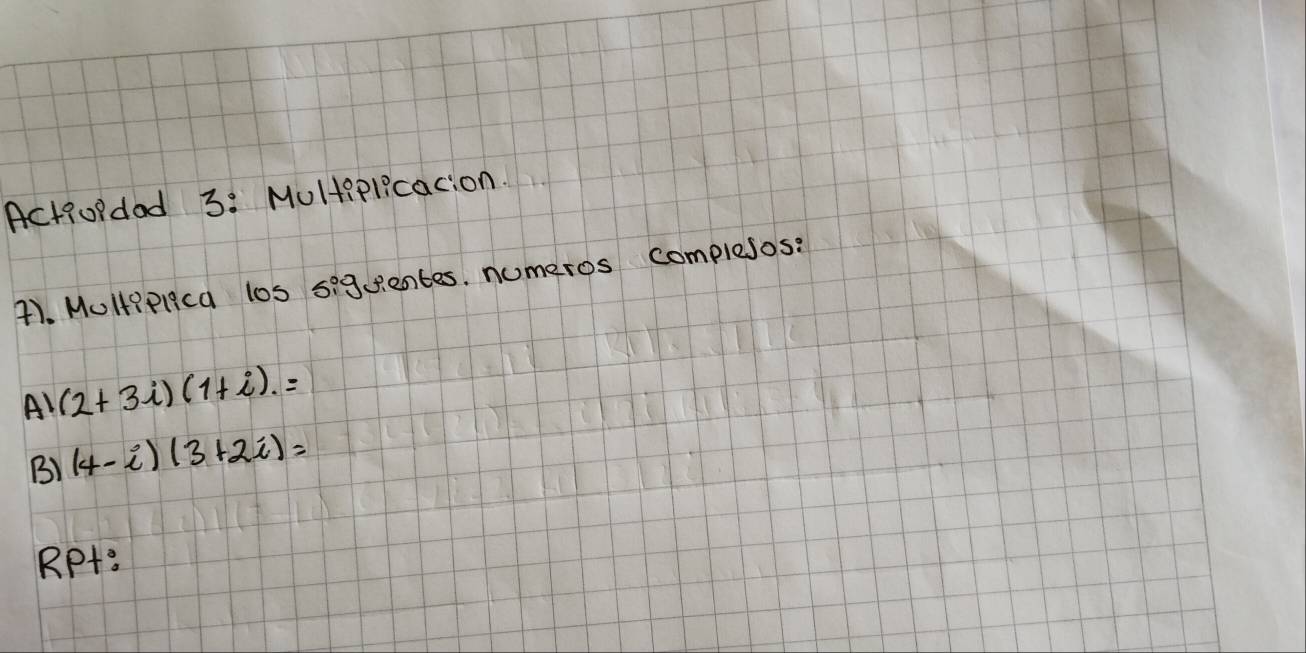 Actividad 3: Multiplicacion.
7). Multiplica los siguientes. numeros complejos:
A) (2+3i)(1+i).=
B) (4-i)(3+2i)=
RPt: